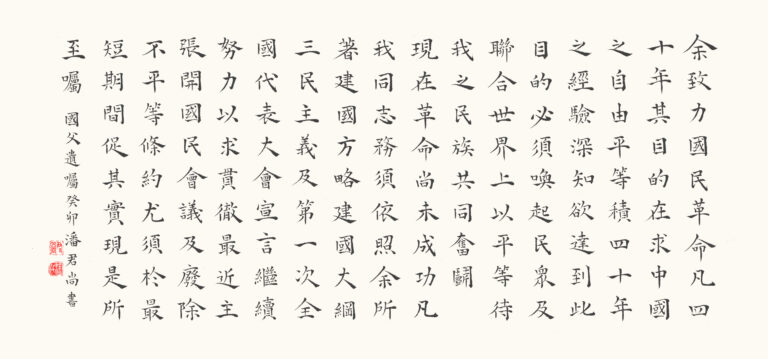 余致力國民革命凡四
十年其目的在求中國
之自由平等積四十年
之經驗深知欲達到此
目的必須喚起民眾及
聯合世界上以平等待
我之民族共同奮鬭
現在革命尚未成功凡
我同志務須依照余所
著建國方略建國大綱
三民主義及第一次全
國代表大會宣言繼續
努力以求貫徹最近主
張開國民會議及廢除
不平等條約尤須於最
短期間促其實現是所
至囑 國父遺囑癸卯潘君尚書